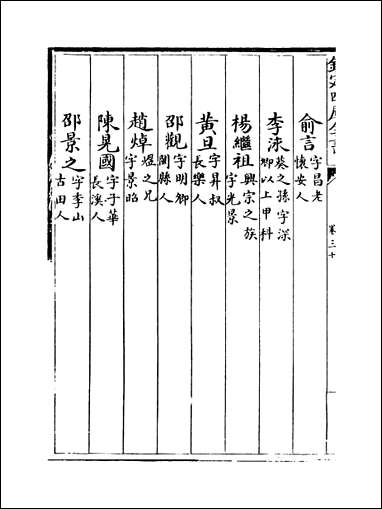 欽定四庫全書
卷三十
俞言字昌老懷安人
李洡葵之孫字深卿以上甲科
楊繼祖興宗之族字光景
黃旦字昇叔長樂人
邵觀字明卿閩縣人
趙焯煜之兄字景昭
陳晃國字子華長溪人
邵景之字季山古田人